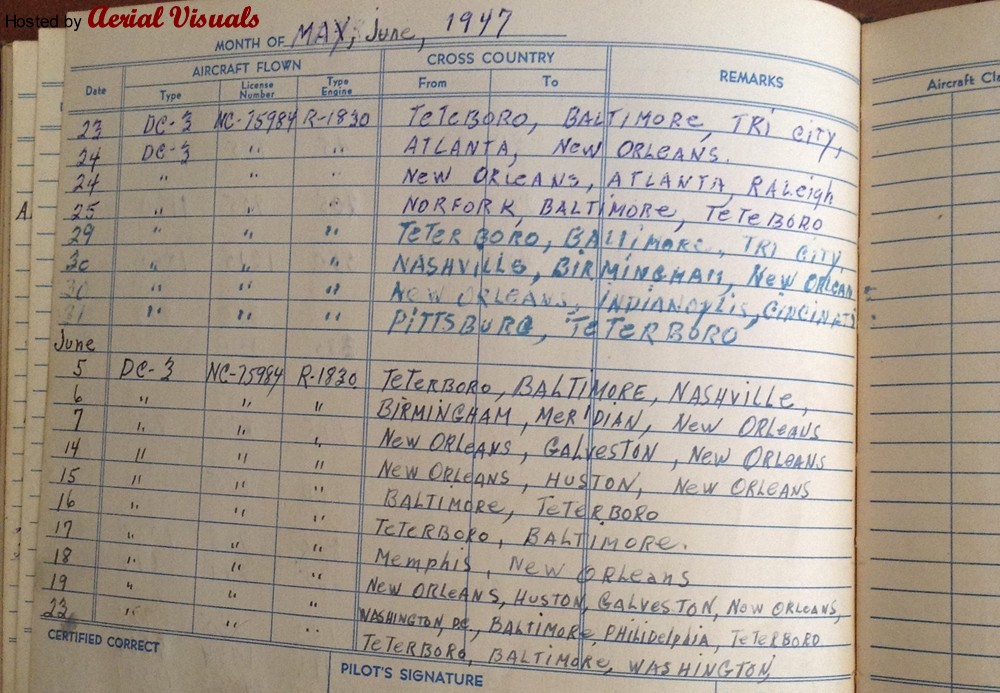 Hosted by Aerial Visuals
MONTH OF MAY, June, 1947
AIRCRAFT FLOWN CROSS COUNTRY REMARKS Aircraft Cla
Date Type License Number Type Engine From To
23 DC-3 NC-75984 R-1830 TeTeBORO, BALTIMORe, TRi CiTY,
24 DC-3 " " ATLANTA, New ORLEANS.
24 " " " New ORLeANS, ATLANTA, RALeigh
25 " " " NORFORK, BALTIMORe, TeTeBORO
A
29 " " " TeTeR BORO, BALTiMORe, TRi CiTY
30 " " " NASHVILLE, BiRMiNGHAM, New ORLeAN
30 " " " NeW ORLEANS, INDiANOPLiS, CiNCiNATi
31 " " " PiTTSBURG, TeTERBORO
June
5 DC-3 NC-75984 R-1830 TeTERBORO, BALTIMORE, NASHVILLe,
6 " " " BIRMINGHAM, MeRIDIAN, New ORLeANS
7 " " " New ORLeANS, GALVeSTON, New ORLeANS
14 " " " New ORLeANS, HUSTON, New ORLeANS
15 " " " BALTIMORe, TeTeRBORO
16 " " " TeTeRBORO, BALTIMORe.
17 " " " Memphis, New ORLeans
18 " " " New ORLEANS, HUSTON, GALVeSTON, New ORLeANS,
19 " " " WASHINGTON, DC, BALTIMORe, PHiLiDeLphiA, TeTeRBORO
23 " " TeTeRBORO, BALTIMORe, WASHINGTON,
CERTIFIED CORRECT
PILOT'S SIGNATURE